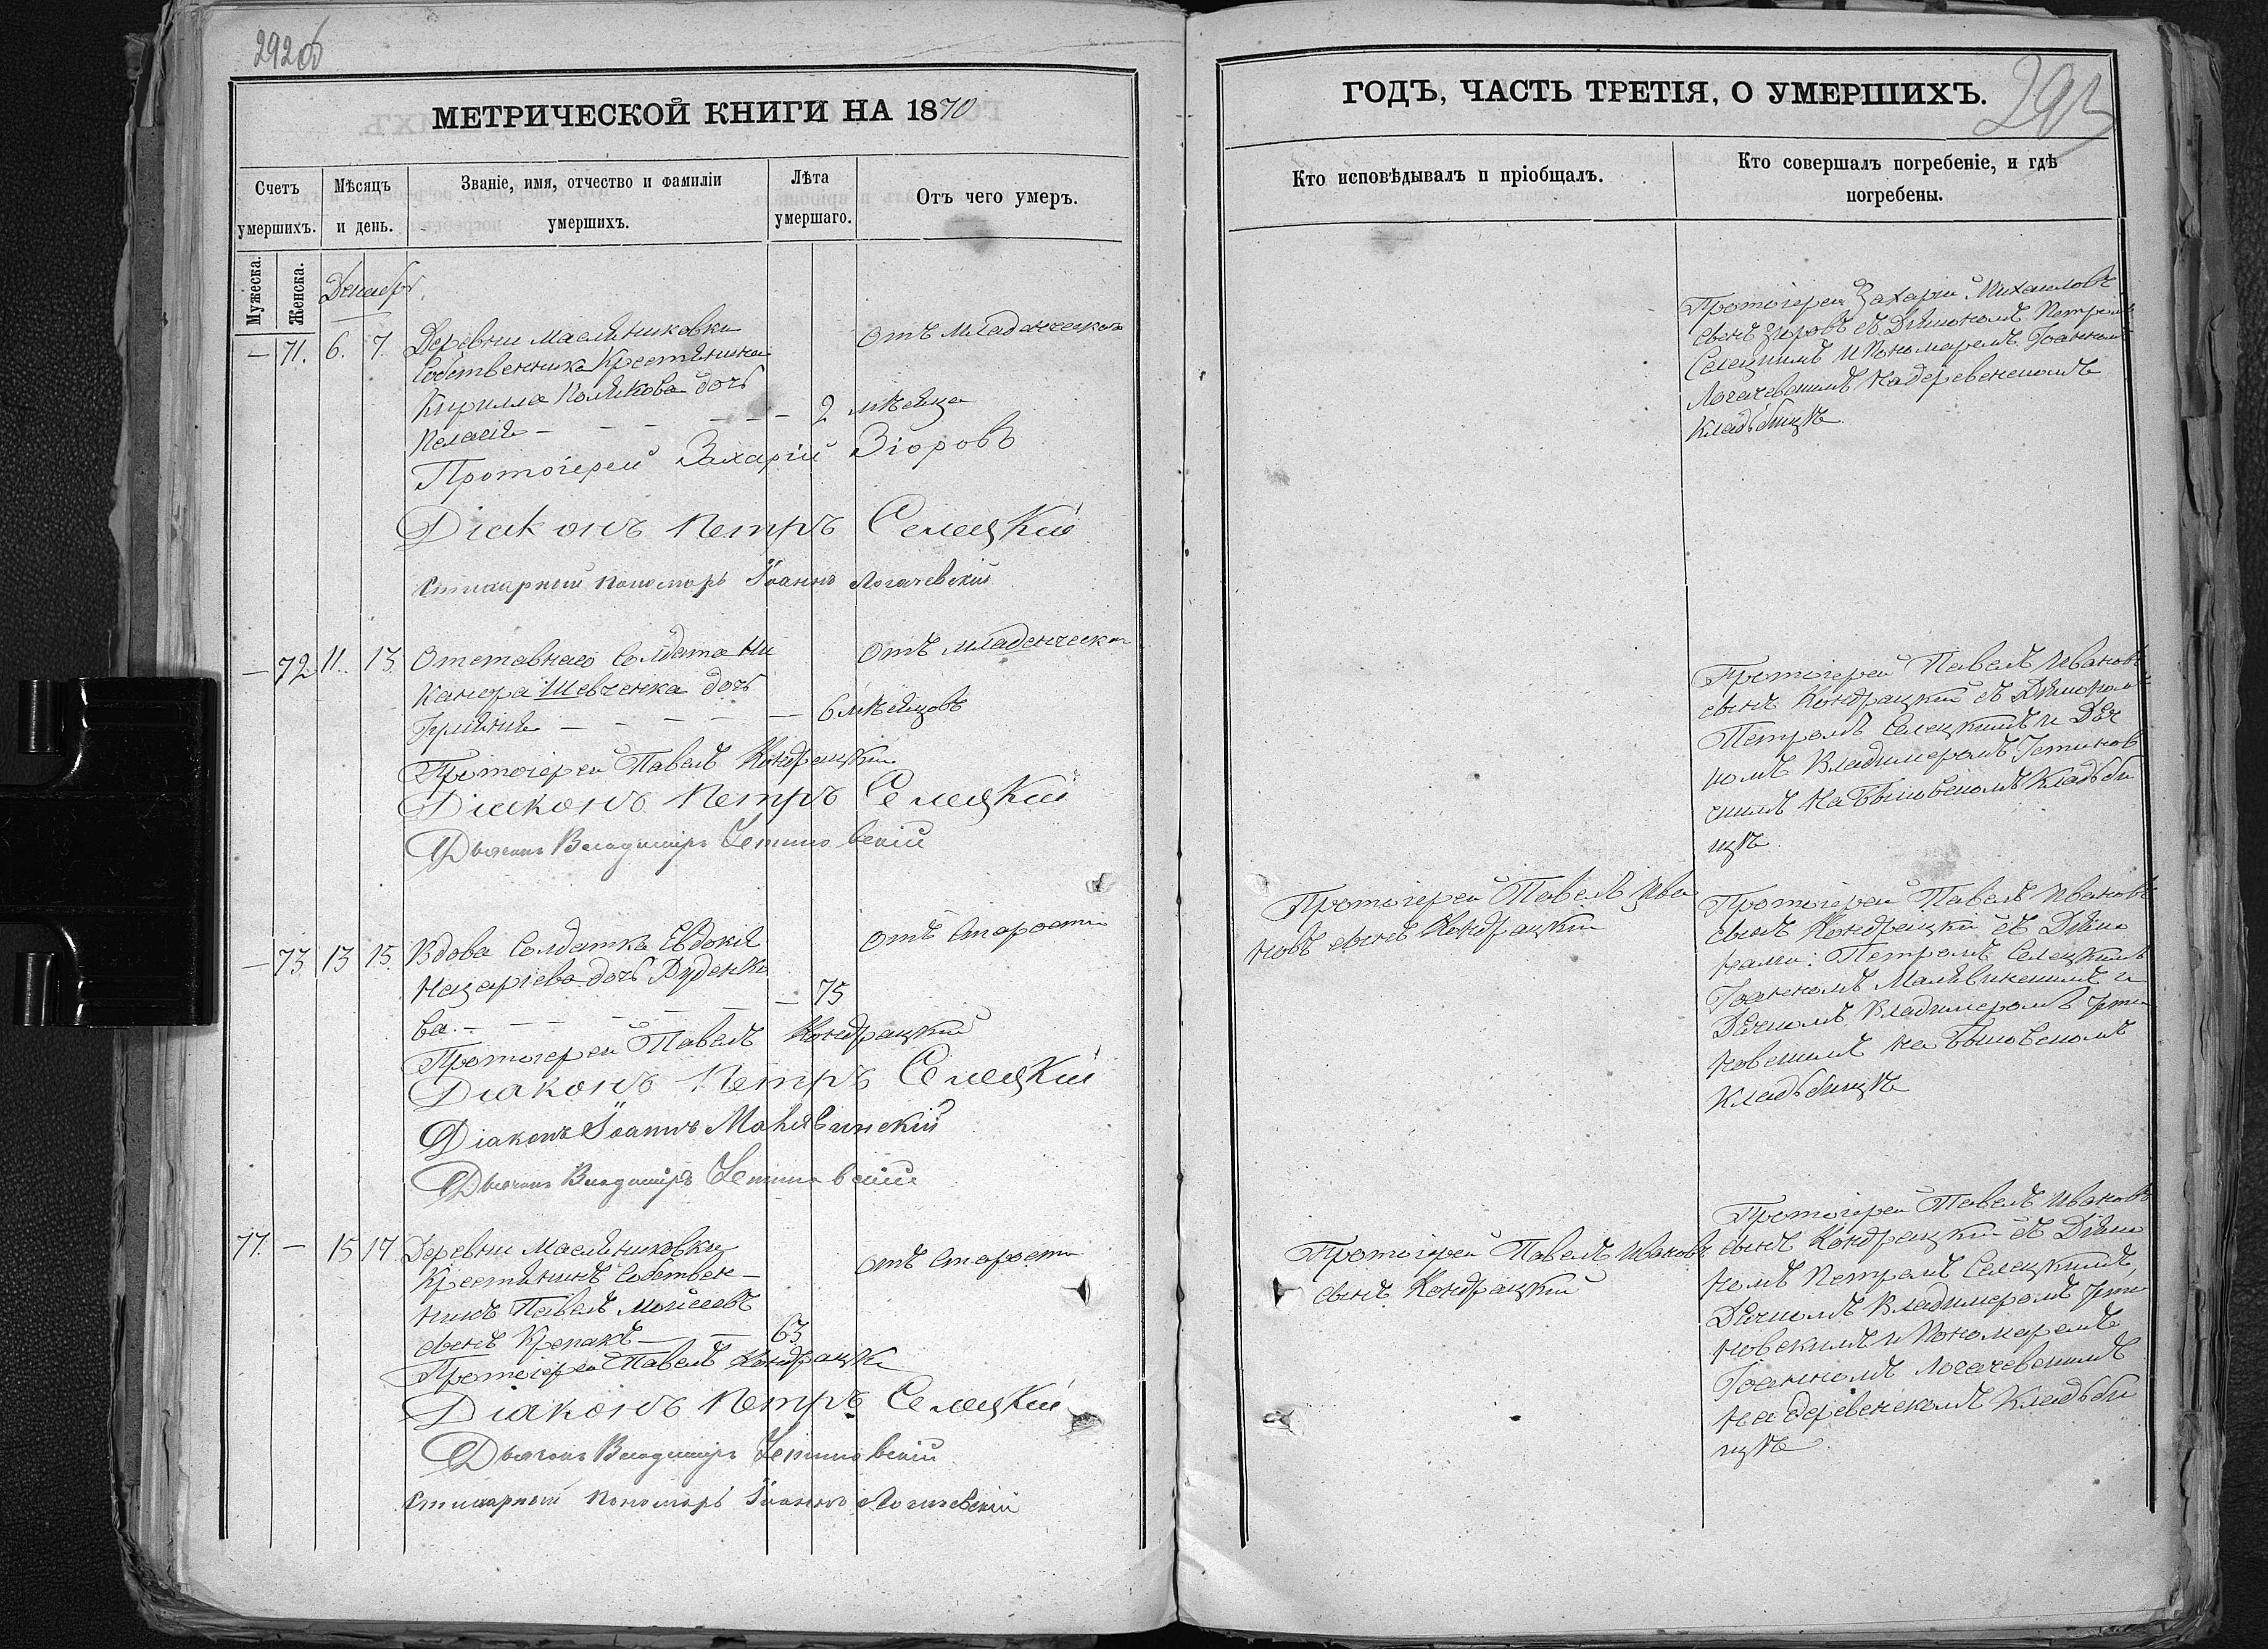 292об
МЕТРИЧЕСКОЙ КНИГИ НА 1870
Счетъ умершихъ.
Мѣсяцъ и день.
Званіе, имя, отчество и фамиліи умершихъ.
Лѣта умершаго.
Отъ чего умеръ.
Мужеска.
Женска.
Декабрь.
— 71. 6. 7. Деревни Маслянниковки отъ младенческой
Собственника Крестьянина
Кирилла Полякова дочь
Пелагія — — — — — 2 мѣсяца
Протоіерей Захарій Зіоровъ
Діаконъ Петръ Селецкій
Стихарный пономарь Іоаннъ Логачевскій
— 72 11. 13. Отставнаго Солдата Ни отъ младенческой
канора Шевченка дочь
Ирина — — — — — 6 мѣсяцовъ
Протоіерей Павелъ Кондрацкій
Діаконъ Петръ Селецкій
Дьячокъ Владиміръ Устиновскій
— 73 13 15. Вдова Солдатка Евдокія отъ Старости
Назаріева дочь Руденко
ва. — — — — — 75
Протоіерей Павелъ Кондрацкій
Діаконъ Петръ Селецкій
Діаконъ Іоаннъ Малявинскій
Дьячокъ Владиміръ Устиновскій
77. — 15 17. Деревни Маслянниковки отъ Старости
Крестьянинъ Собствен—
никъ Павелъ Моисеевъ
сынъ Крепакъ — — 63
Протоіерей Павелъ Кондрацкій
Діаконъ Петръ Селецкій
Дьячокъ Владиміръ Устиновскій
Стихарный пономарь Іоаннъ Логачевскій
ГОДЪ, ЧАСТЬ ТРЕТІЯ, О УМЕРШИХЪ.
293
Кто исповѣдывалъ и пріобщалъ.
Кто совершалъ погребеніе, и гдѣ
погребены.
Протоіерей Захарій Михаиловъ
сынъ Зіоровъ съ Діякономъ Петромъ
Селецкимъ и Пономаремъ Іоанномъ
Логачевскимъ на деревенскомъ
Кладьбищѣ.
Протоіерей Павелъ Ивановъ
сынъ Кондрацкій съ Діякономъ
Петромъ Селецкимъ и Дяч
комъ Владимеромъ Устинов
скимъ на Кладьби
щѣ.
Протоіерей Павелъ Ива
новъ сынъ Кондрацкій
Протоіерей Павелъ Ивановъ
сынъ Кондрацкій съ Діяко
нами: Петромъ Селецкимъ
Іоанномъ Малявинскимъ и
Дячкомъ Владимеромъ Усти
новскимъ на
Кладьбищѣ
Протоіерей Павелъ Ивановъ
сынъ Кондрацкій
Протоіерей Павелъ Ивановъ
сынъ Кондрацкій съ Діяко
номъ Петромъ Селецкимъ,
Дячкомъ Владимеромъ Усти
новскимъ и Пономаремъ
Іоанномъ Логачевскимъ
на деревенскомъ Кладьби
щѣ.